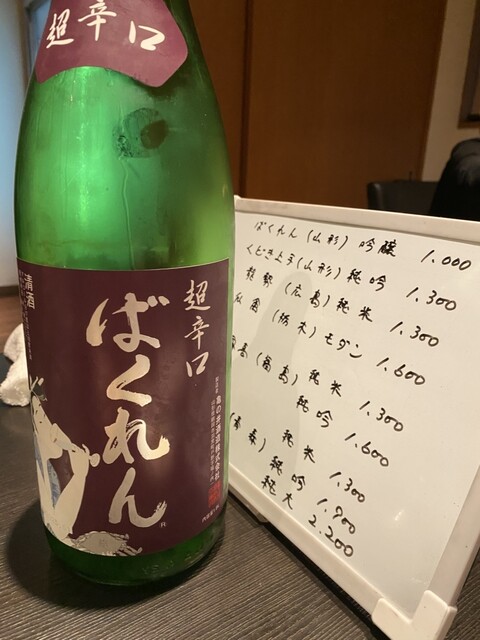 超辛口
清酒
超辛口
ばくれん
亀の井酒造株式会社
ばくれん (山形) 吟醸 1.000
くどき上手 (山形) 純吟 1.300
(広島) 純米 1.300
(栃木) モダン 1.600
純米 1.300
純吟 1.600
純米 1.300
純吟 1.900
純大 2.200